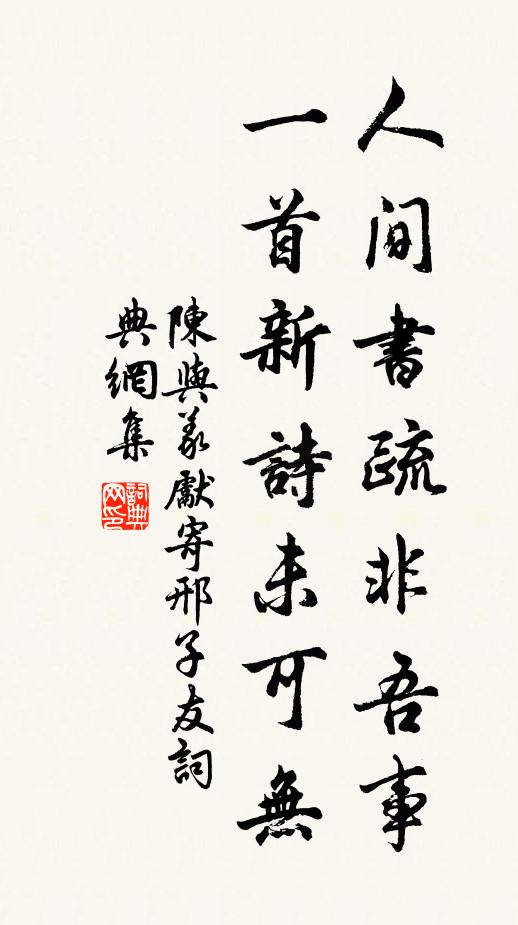 人間書疏非吾事
一首新詩未可無
陳與義獻寄邢子友詞
典網集
詞典
网印